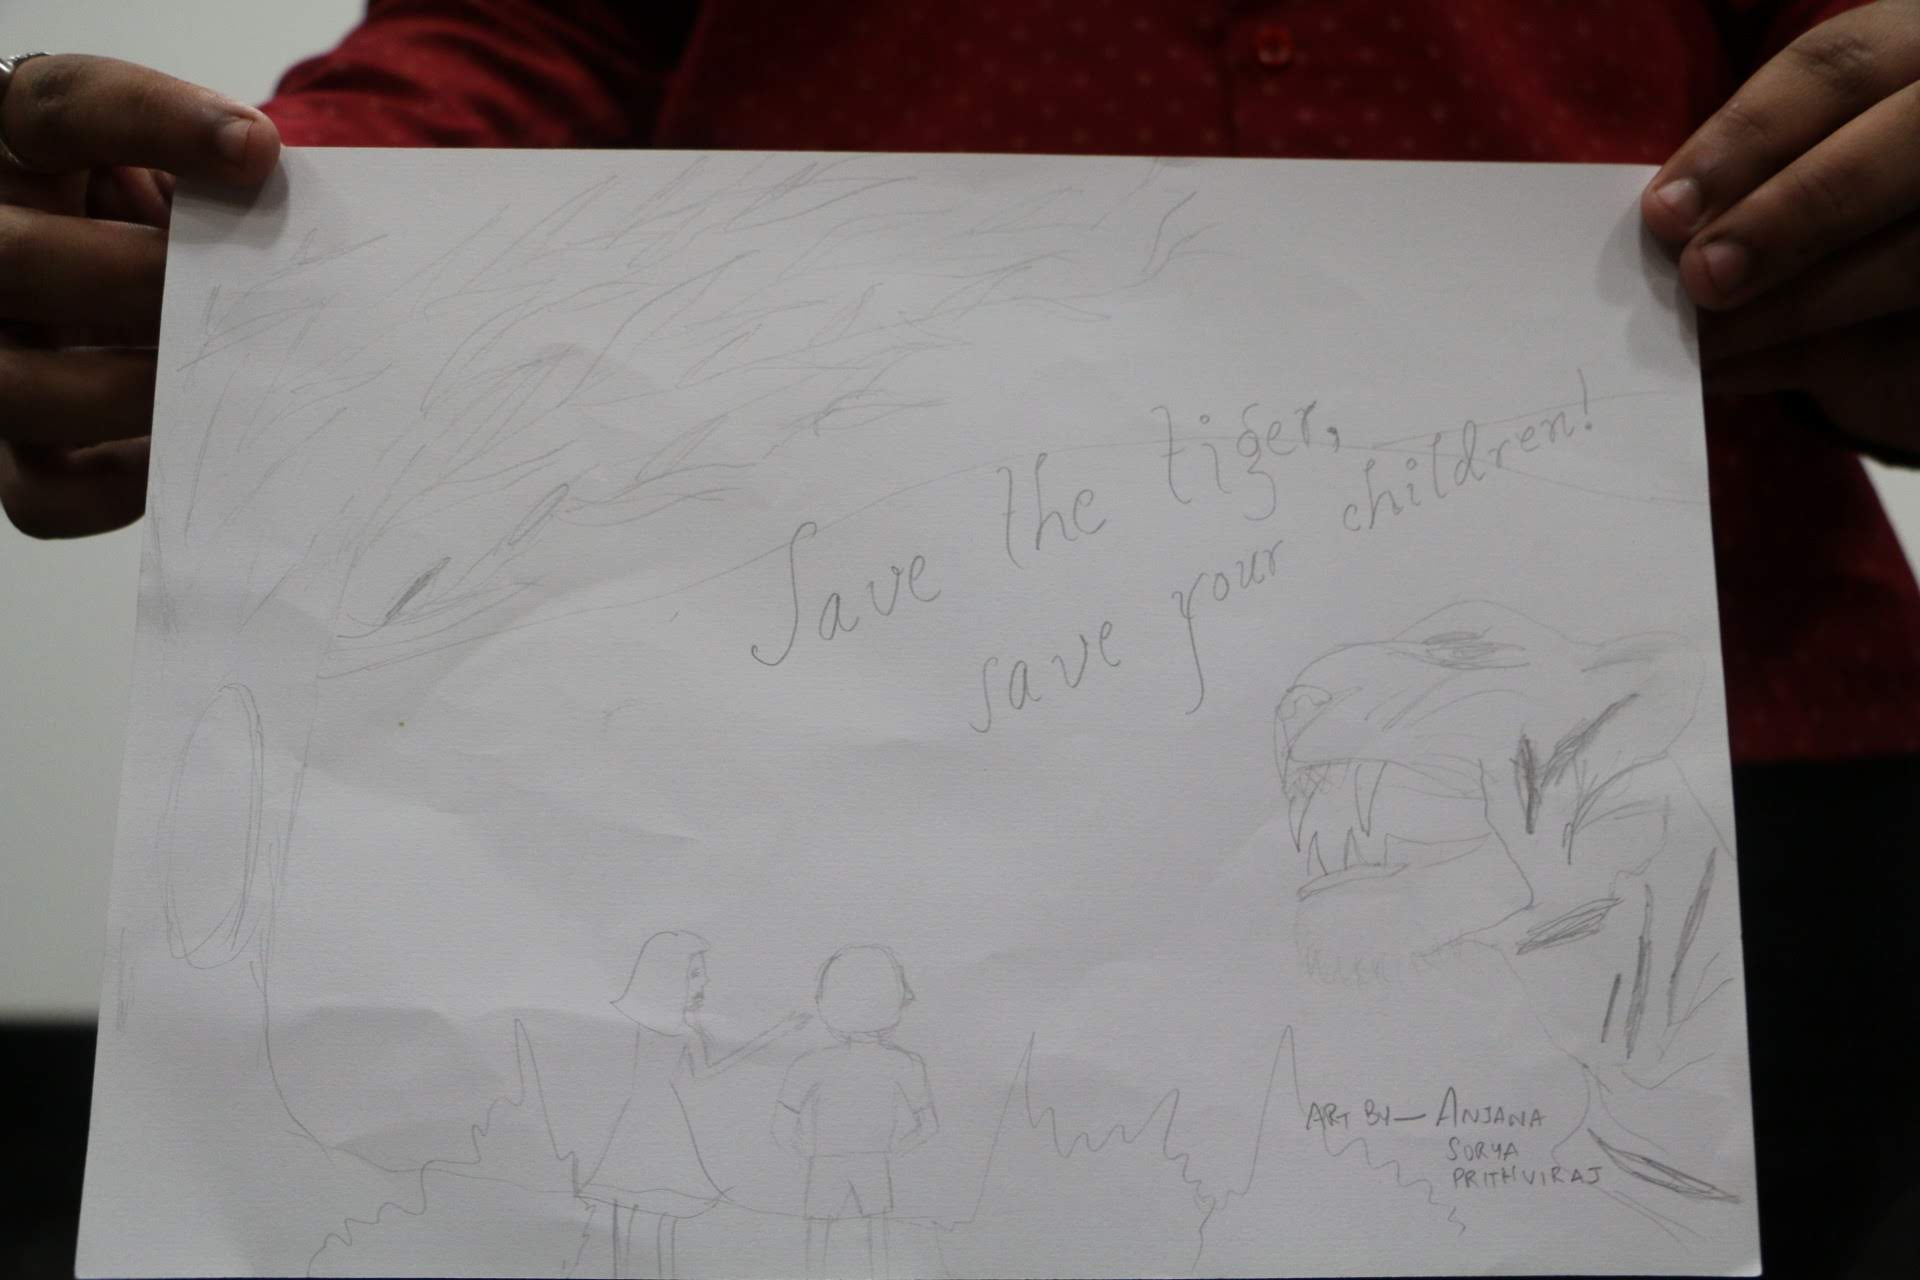 Save the tiger,
save your children!
ART BY— ANJANA
SORYA
PRITHVIRAJ